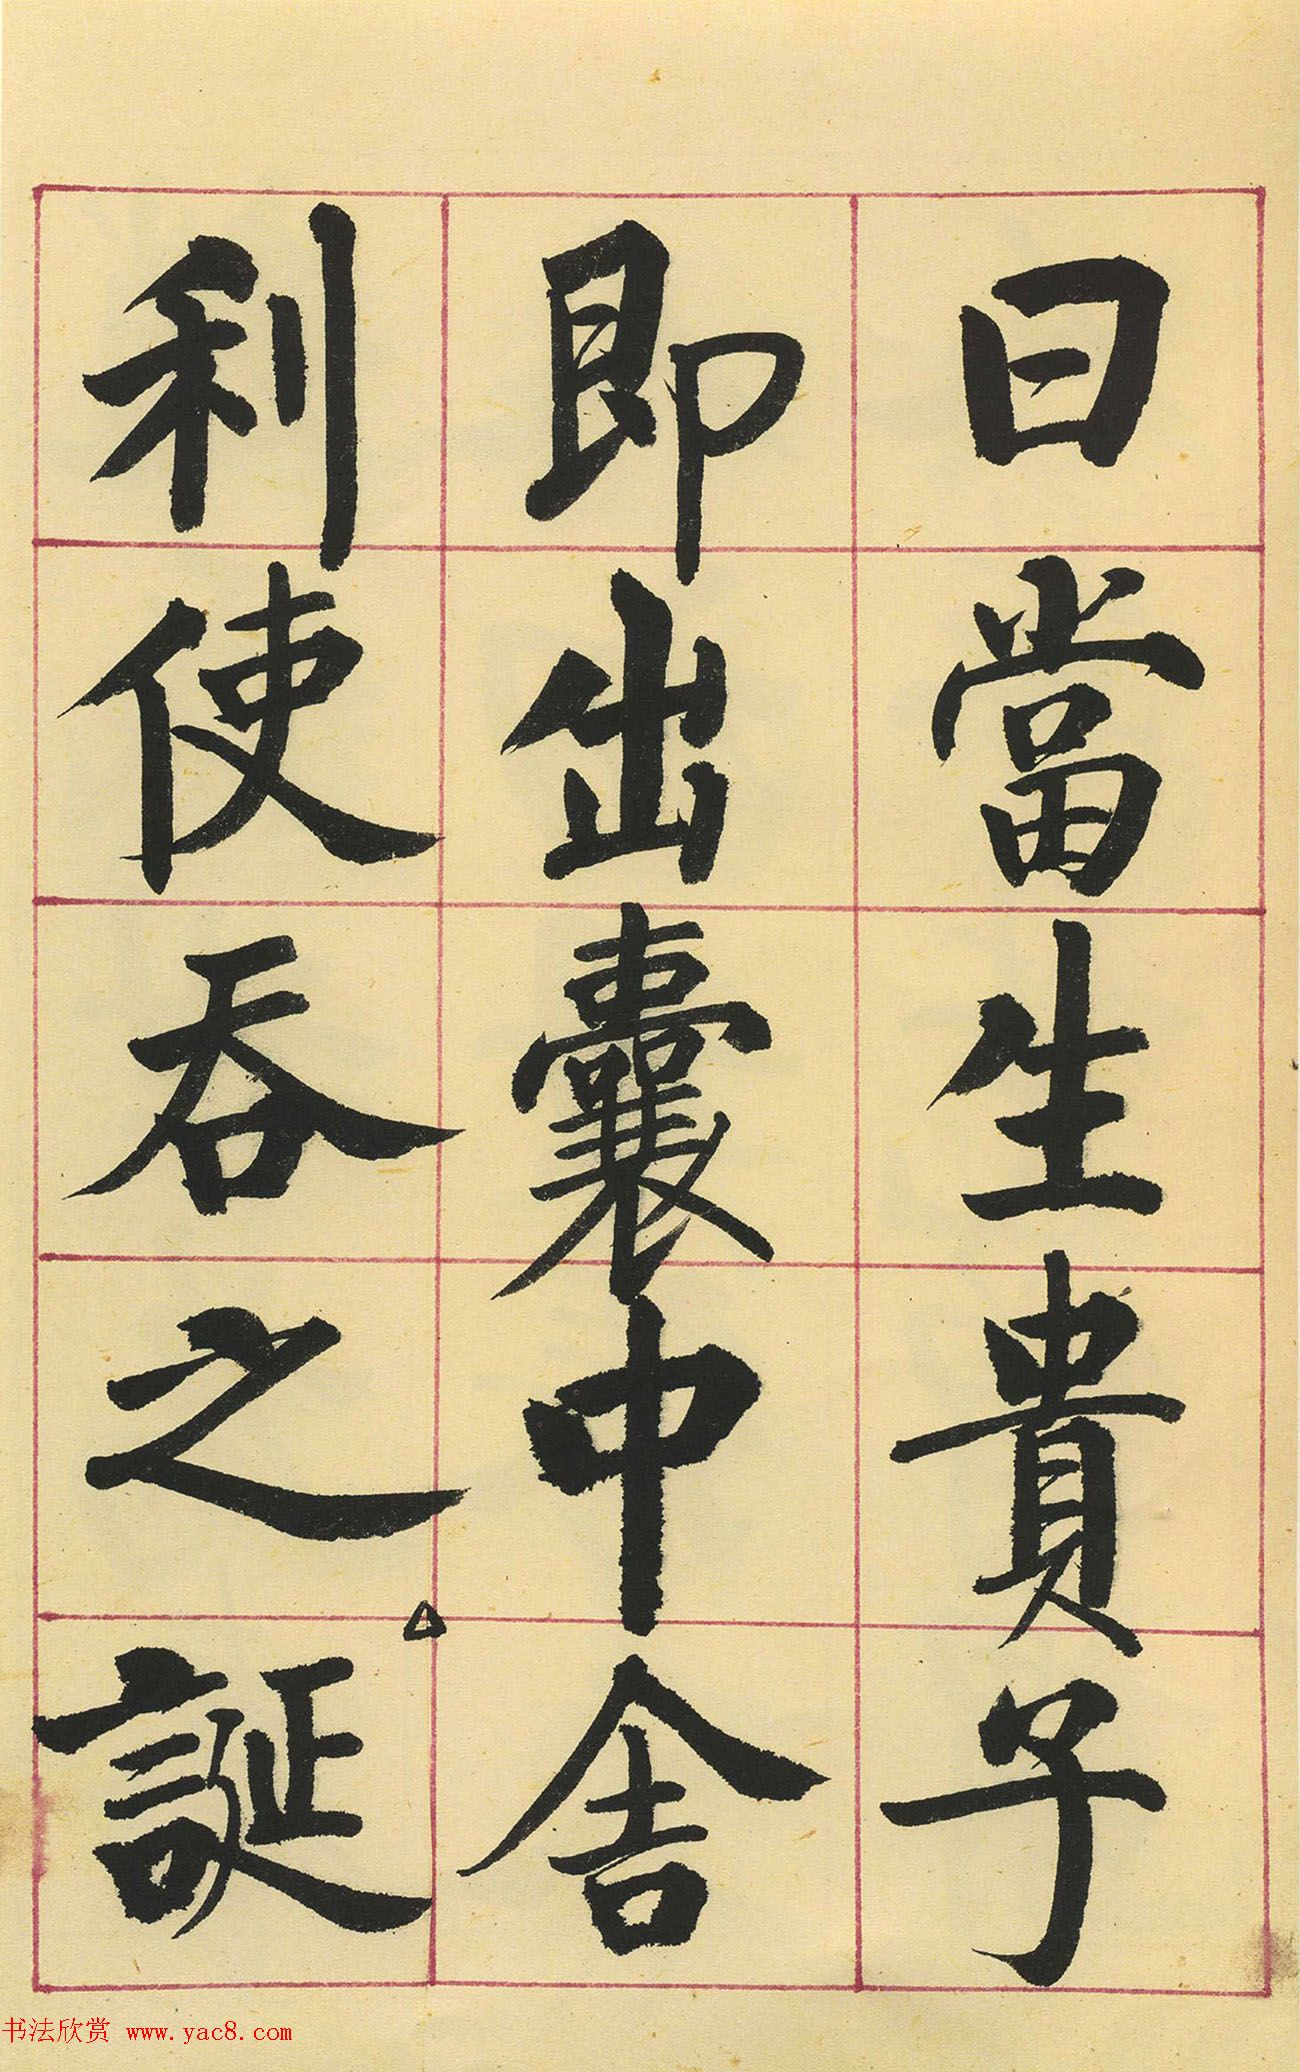 曰當生貴子
即出囊中舍
利使吞之誕
书法欣赏 www.yac8.com